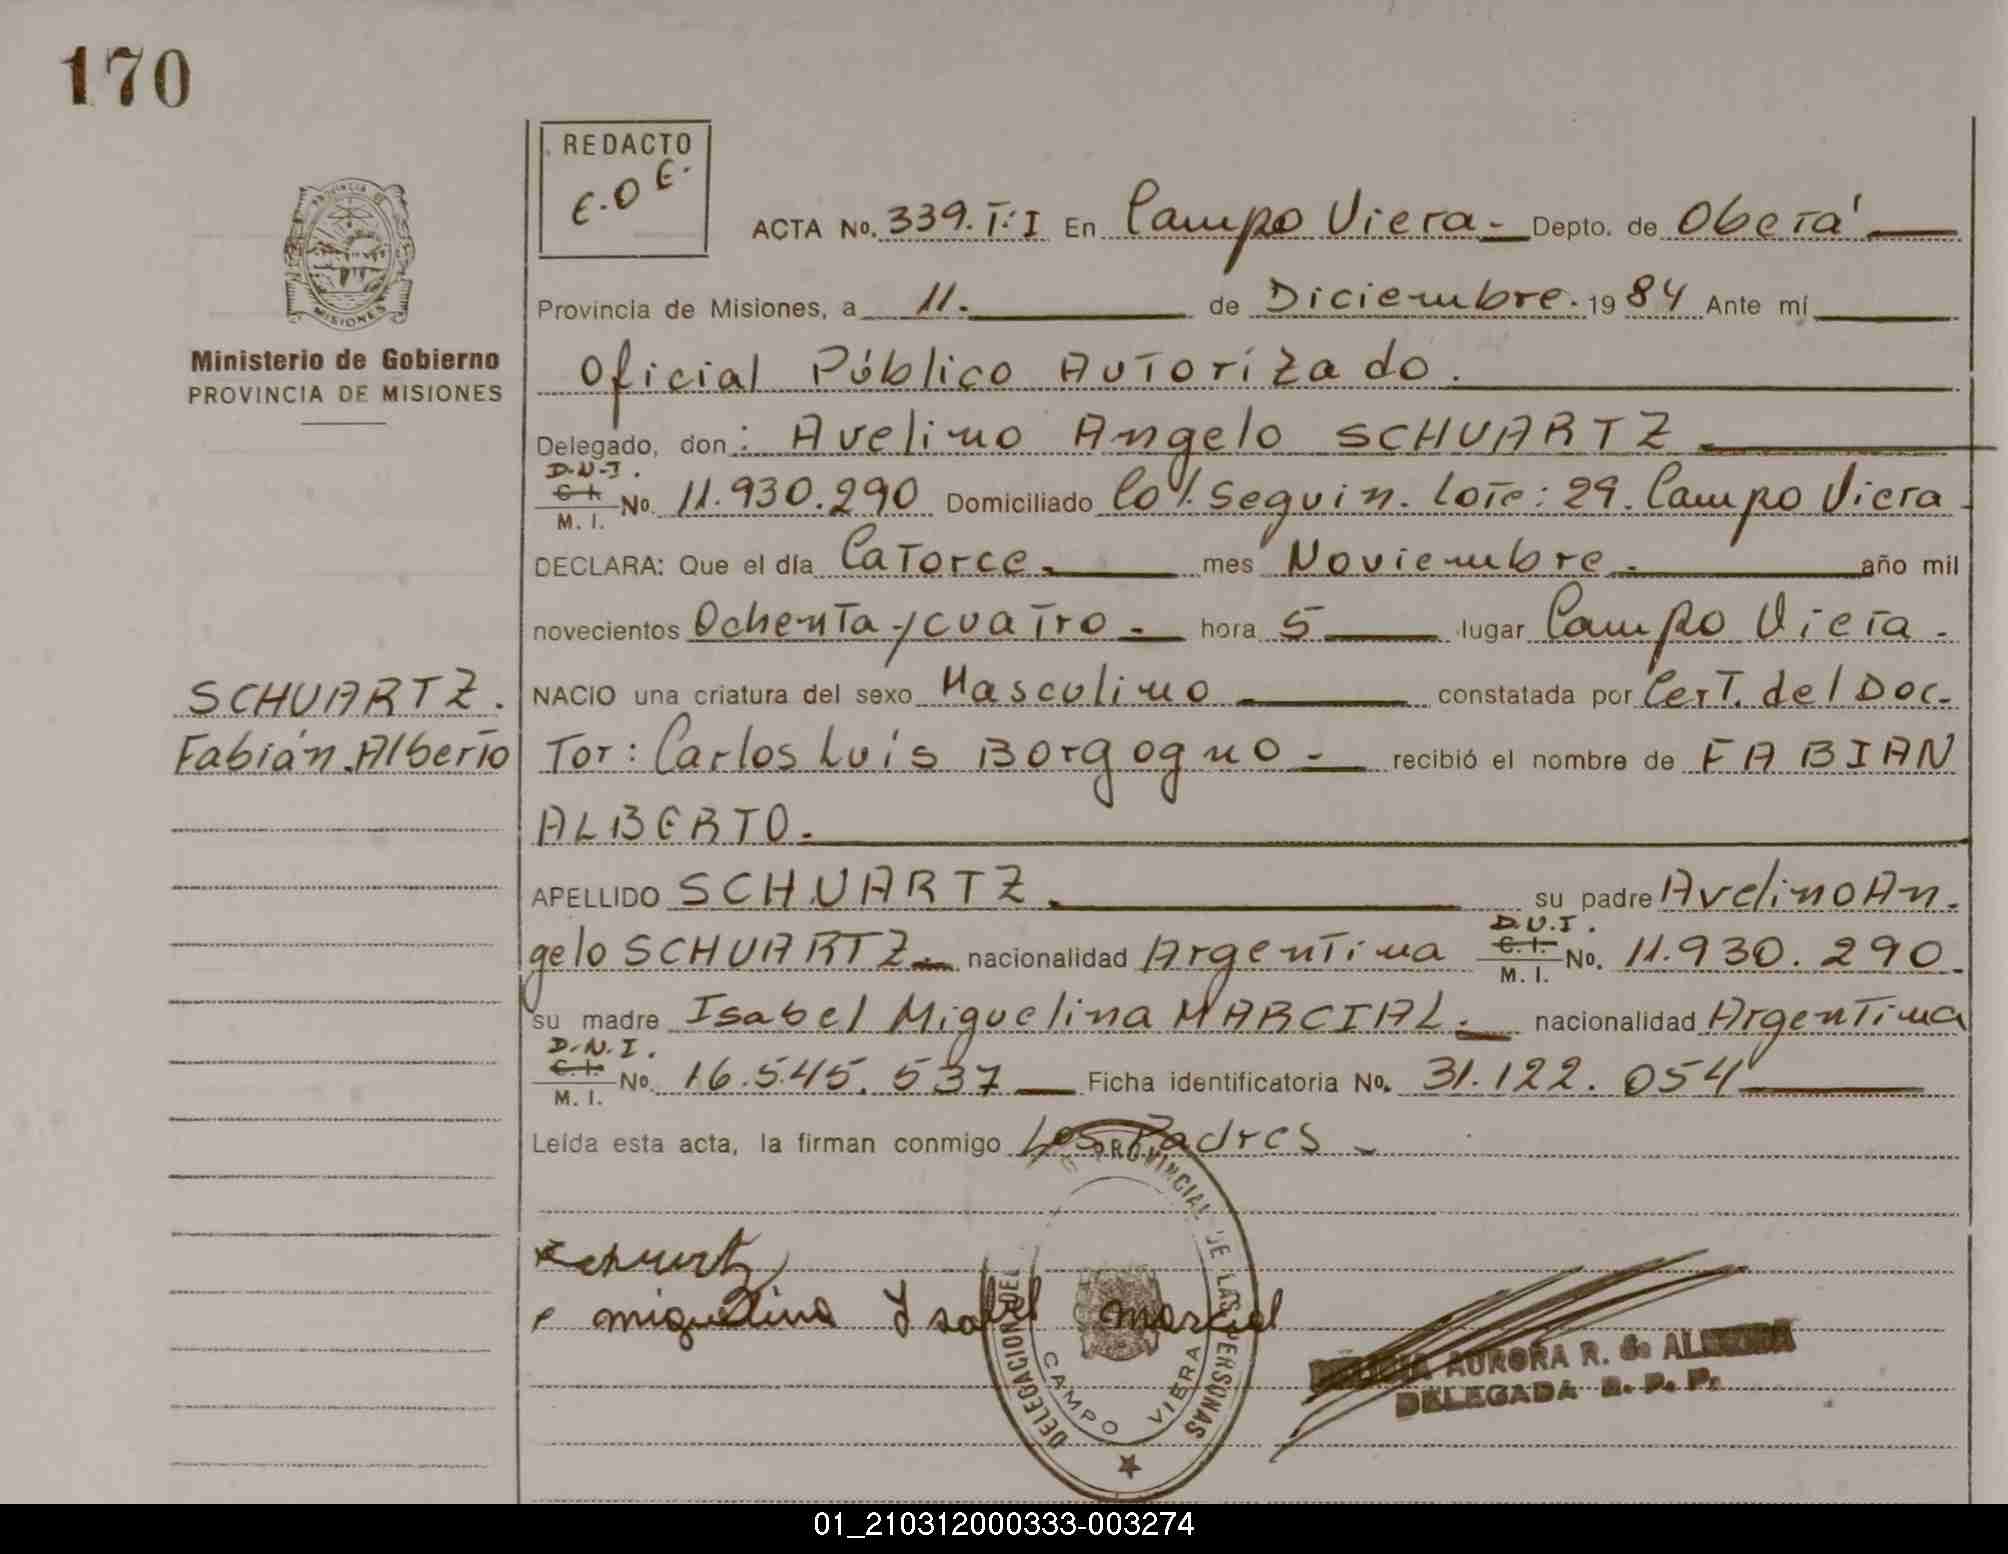 170
REDACTO
E.O E.
PROVINCIA DE
MISIONES
Ministerio de Gobierno
PROVINCIA DE MISIONES
ACTA No. 339. T: I En Campo Viera - Depto. de Oberá
Provincia de Misiones, a 11. de Diciembre. 19 84 Ante mí
Oficial Público Autorizado.
Delegado, don: Avelino Angelo SCHUARTZ
D.N.I.
C.I.
M. I. No. 11.930.290 Domiciliado Col. Seguin. Lote: 29. Campo Viera
DECLARA: Que el día Catorce. mes Noviembre. año mil
novecientos Ochenta y cuatro - hora 5 lugar Campo Viera.
NACIO una criatura del sexo Masculino constatada por Cert. del Doc-
Tor: Carlos Luís Borgogno - recibió el nombre de FABIAN
ALBERTO.
SCHUARTZ.
Fabián Alberto
APELLIDO SCHUARTZ. su padre Avelino An-
gelo SCHUARTZ. nacionalidad Argentina D.N.I. C.I. M. I. No. 11.930.290.
su madre Isabel Miguelina MARCIAL. nacionalidad Argentina
D.N.I.
C.I.
M. I. No. 16.545.537 Ficha identificatoria No. 31.122.054
Leída esta acta, la firman conmigo Los Padres -
Schuartz
miguelina Ysabel marcial
DELEGACION DEL PROVINCIAL DE LAS PERSONAS
CAMPO VIERA
AURORA R. de
DELEGADA R. P. P.
01_210312000333-003274